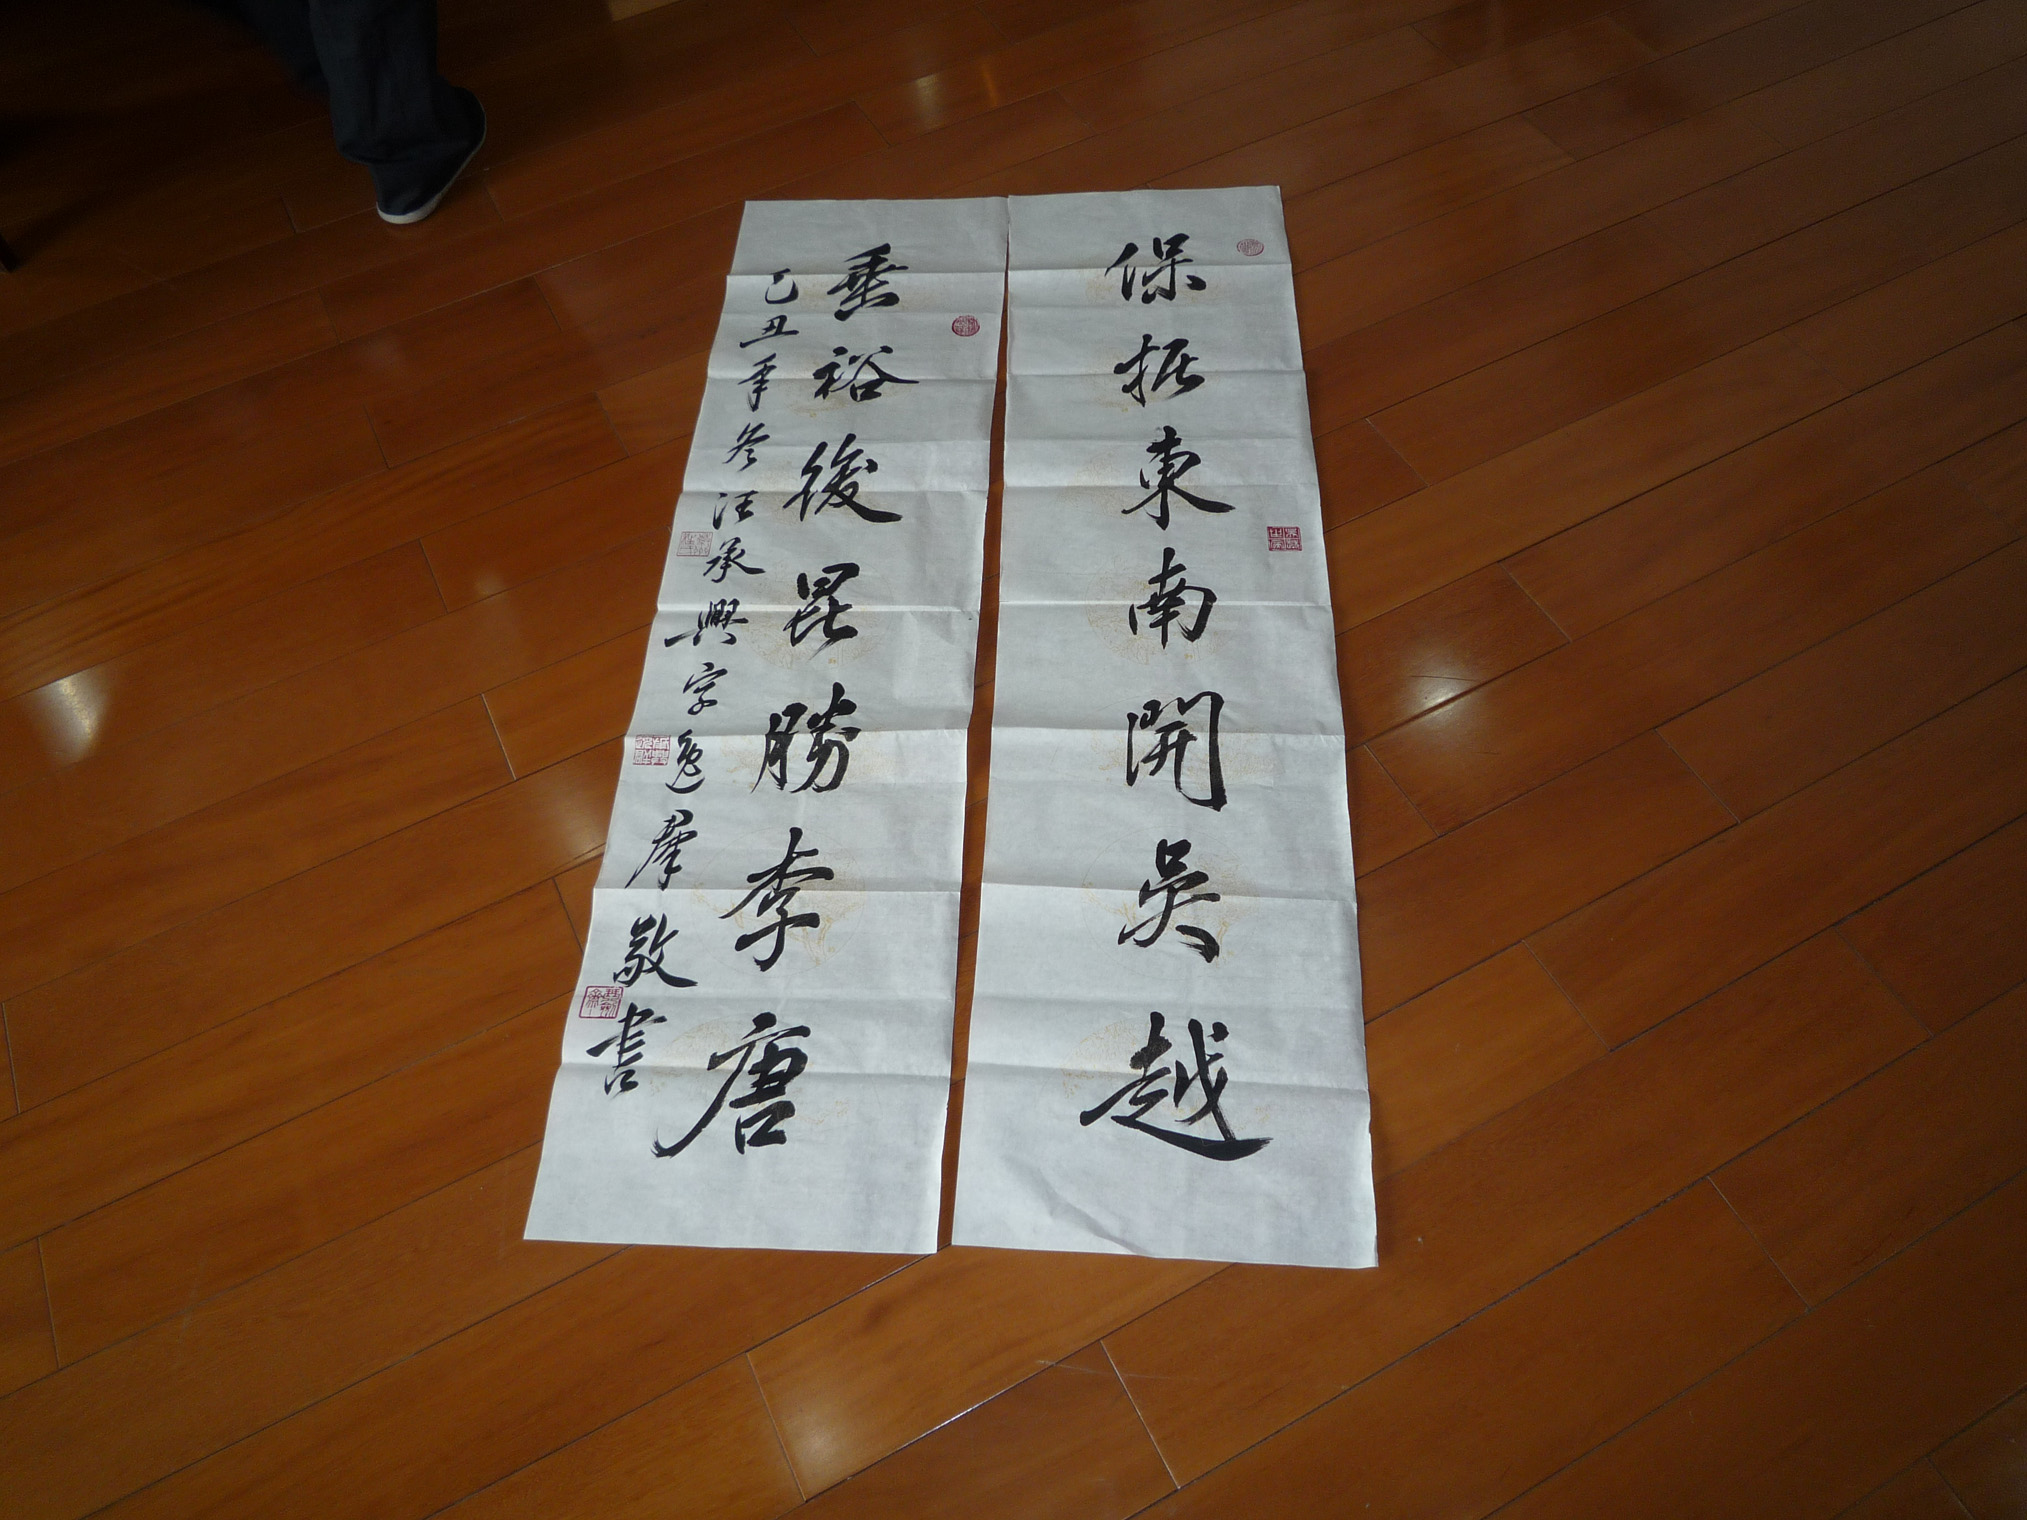 保振東南開吳越
垂裕後昆勝李唐
己丑年冬汪承興字逸群敬書